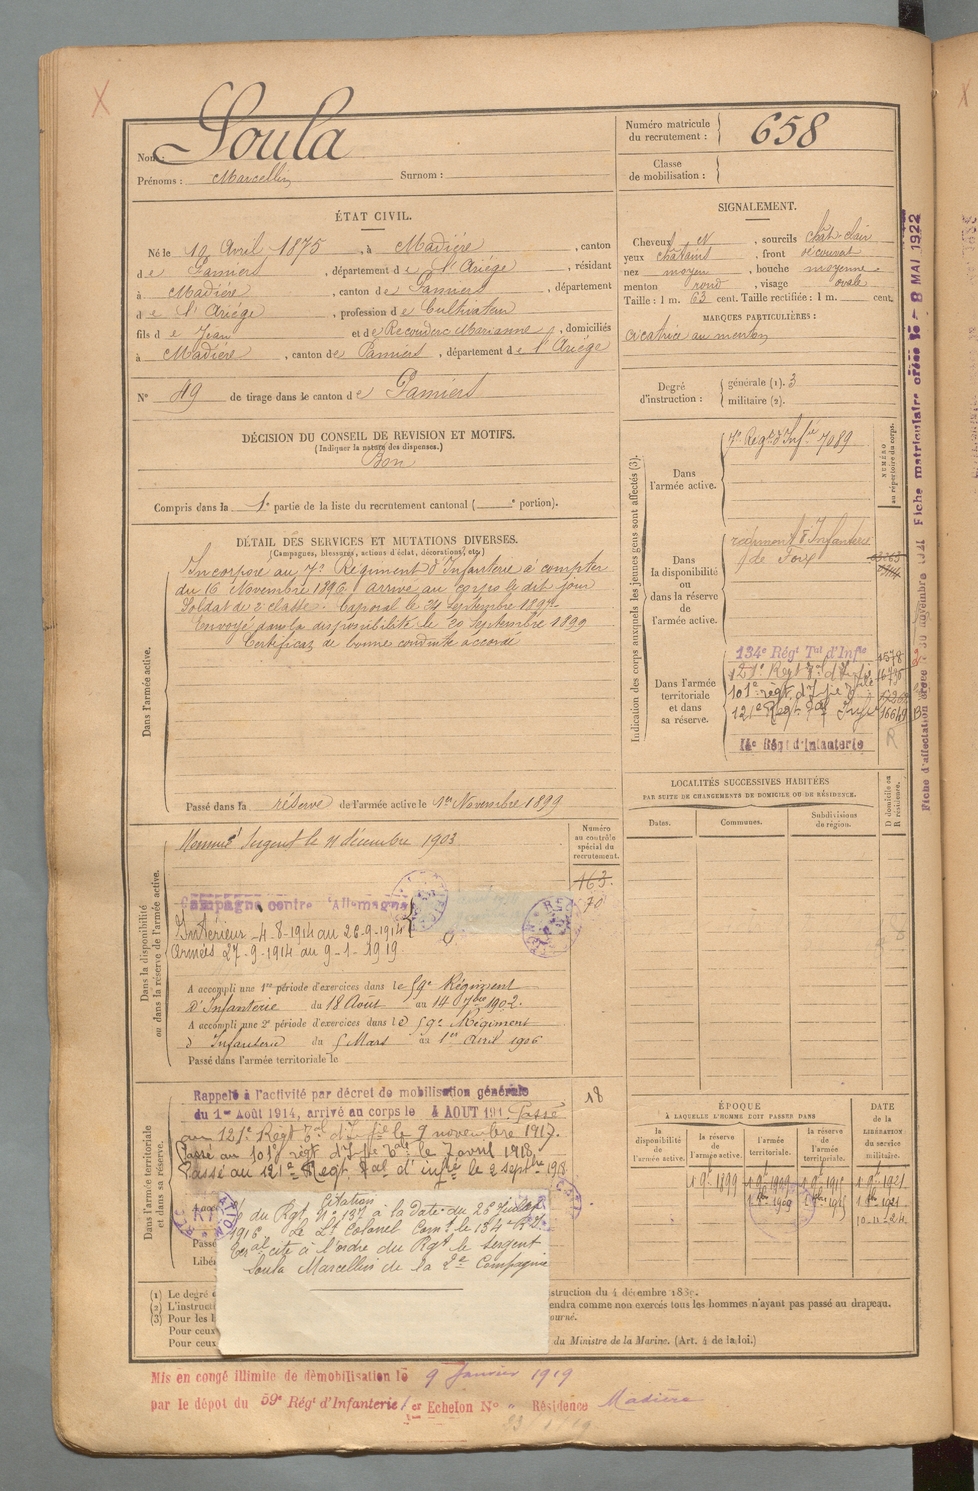 Nom : Soula
Prénoms : Marcellin Surnom :
Numéro matricule du recrutement : 658
Classe de mobilisation :
ÉTAT CIVIL.
Né le 12 Avril 1875, à Madière, canton
de Pamiers, département de l'Ariége, résidant
à Madière, canton de Pamiers, département
de l'Ariége, profession de Cultivateur
fils de Jean et de Recouderc Marianne, domiciliés
à Madière, canton de Pamiers, département de l'Ariége
N° 49 de tirage dans le canton de Pamiers
SIGNALEMENT.
Cheveux N, sourcils chât clair
yeux châtains, front découvert
nez moyen, bouche moyenne
menton rond, visage ovale
Taille : 1 m. 63 cent. Taille rectifiée : 1 m. cent.
MARQUES PARTICULIÈRES :
cicatrice au menton
Degré d'instruction : générale (1). 3
militaire (2).
DÉCISION DU CONSEIL DE REVISION ET MOTIFS.
(Indiquer la nature des dispenses.)
Bon
Compris dans la 1e partie de la liste du recrutement cantonal ( e portion).
DÉTAIL DES SERVICES ET MUTATIONS DIVERSES.
(Campagnes, blessures, actions d'éclat, décorations, etc.)
Dans l'armée active.
Incorporé au 7e Régiment d'Infanterie à compter
du 16 Novembre 1896 arrivé au corps le dit jour
Soldat de 2e classe. Caporal le 24 Septembre 1897.
Envoyé dans la disponibilité le 20 Septembre 1899
Certificat de bonne conduite accordé
Passé dans la réserve de l'armée active le 1er Novembre 1899
Indication des corps auxquels les jeunes gens sont affectés (3).
NUMÉRO au répertoire du corps.
Dans l'armée active.
7e Régt d'Infie 7089
Dans la disponibilité ou dans la réserve de l'armée active.
régiment d'Infanterie
de Foix
Dans l'armée territoriale et dans sa réserve.
134e Régt Tal d'Infie 1578
121e Regt
101e régt d'Infie
121e Regt Tal Infie 16649
14e Régt d'Infanterie
R
LOCALITÉS SUCCESSIVES HABITÉES
PAR SUITE DE CHANGEMENTS DE DOMICILE OU DE RÉSIDENCE.
D domicile ou R résidence.
Dates. Communes. Subdivisions de région.
Dans la disponibilité ou dans la réserve de l'armée active.
Numéro au contrôle spécial du recrutement.
163.
70
Nommé Sergent le 11 décembre 1903
Campagne contre l'Allemagne
Intérieur 4-8-1914 au 26-9-1914
Armées 27-9-1914 au 9-1-1919
A accompli une 1re période d'exercices dans le 59e Régiment
d'Infanterie du 18 Août au 14 7bre 1902.
A accompli une 2e période d'exercices dans le 59e Régiment
d'Infanterie du 5 Mars au 1er Avril 1906
Passé dans l'armée territoriale le
Dans l'armée territoriale et dans sa réserve.
18
Rappelé à l'activité par décret de mobilisation générale
du 1er Août 1914, arrivé au corps le 4 AOUT 191 Passé
au 121e Régt Tal d'Infie le 9 novembre 1917.
Passé au 101e régt d'Infie tale le 7 avril 1918
Passé au 121e Regt Tal d'infie le 2 septbre 1918
Citation
du Rgt N° 137 à la Date du 26 juillet
1916. Le Lt Colonel Comt le 134e R.I.
Tal cite à l'ordre du Rgt le Sergent
Soula Marcellin de la 2e Compagnie
ÉPOQUE
À LAQUELLE L'HOMME DOIT PASSER DANS
la disponibilité de l'armée active. la réserve de l'armée active. l'armée territoriale. la réserve de l'armée territoriale.
DATE de la LIBÉRATION du service militaire.
1 9bre 1899
10-11-24
(1) Le degré
(2) L'instruct
(3) Pour les
Pour ceux
Pour ceux
endra comme non exercés tous les hommes n'ayant pas passé au drapeau.
du Ministre de la Marine. (Art. 4 de la loi.)
Mis en congé illimité de démobilisation le 9 Janvier 1919
par le dépot du 59e Régt d'Infanterie 1er Echelon N° " Résidence Madière
Fiche matriculaire créée le - 8 MAI 1922